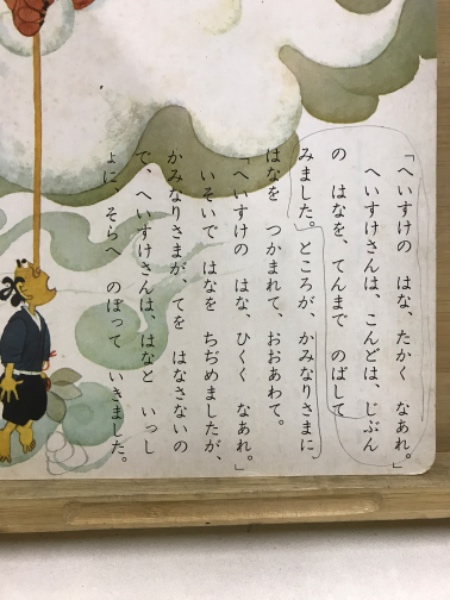 「へいすけの　はな、たかく　なあれ。」
　へいすけさんは、こんどは、じぶん
の　はなを、てんまで　のばして
みました。ところが、かみなりさまに
はなを　つかまれて、おおあわて。
「へいすけの　はな、ひくく　なあれ。」
　いそいで　はなを　ちぢめましたが、
かみなりさまが、てを　はなさないの
で、へいすけさんは、はなと　いっし
ょに、そらへ　のぼって　いきました。